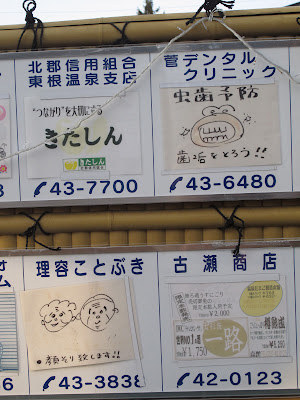 北郡信用組合
東根温泉支店
"つながり"を大切にする
きたしん
きたしん
43-7700
菅デンタル
クリニック
虫歯予防
歯垢をとろう!!
43-6480
理容ことぶき
・顔そり致します!!
43-3838
古瀬商店
¥2,000
一路
¥1,750
42-0123